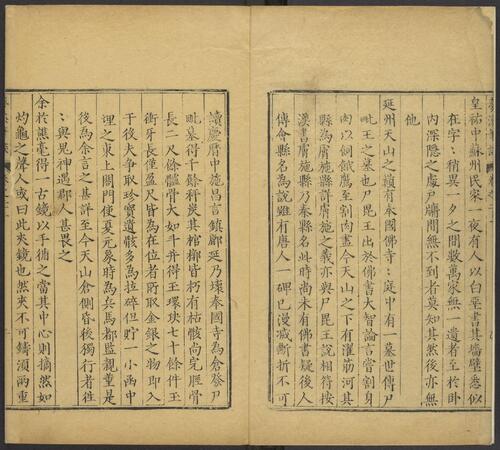 皇祐中蘇州民家一夜有人以白堊書其牆壁悉似
在字〻稍異一夕之間數萬家無一遺者至於卧
內深隱之處戶牖間無不到者莫知其然後亦無
他
延州天山之巔有奉國佛寺〻庭中有一墓世傳尸
毗王之墓也尸毗王出於佛書大智論言嘗割身
肉以飼餓鷹至割肉盡今天山之下有濯筋河其
縣為膚施縣詳膚施之義亦與尸毗王說相符按
漢書膚施縣乃秦縣名此時尚未有佛書疑後人
傳會縣名為說雖有唐人一碑已漫滅斷折不可
讀慶曆中施昌言鎮鄜延乃壞奉國寺為倉發尸
毗墓得千餘秤炭其棺槨皆朽有枯骸尚完脛骨
長二尺餘髑骨大如斗并得玉環玦七十餘件玉
衝牙長僅盈尺皆為在位者所取金銀之物即入
于後夫争取珍寶遺骸多為拉碎但貯一小函中
埋之東上閤門使夏元象時為兵馬都監親董是
後為余言之甚詳至今天山倉側昏後獨行者往
〻與鬼神遇郡人甚畏之
余於譙亳得一古鏡以手循之當其中心則摘然如
灼龜之聲人或曰此夾鏡也然夾不可鑄須兩重